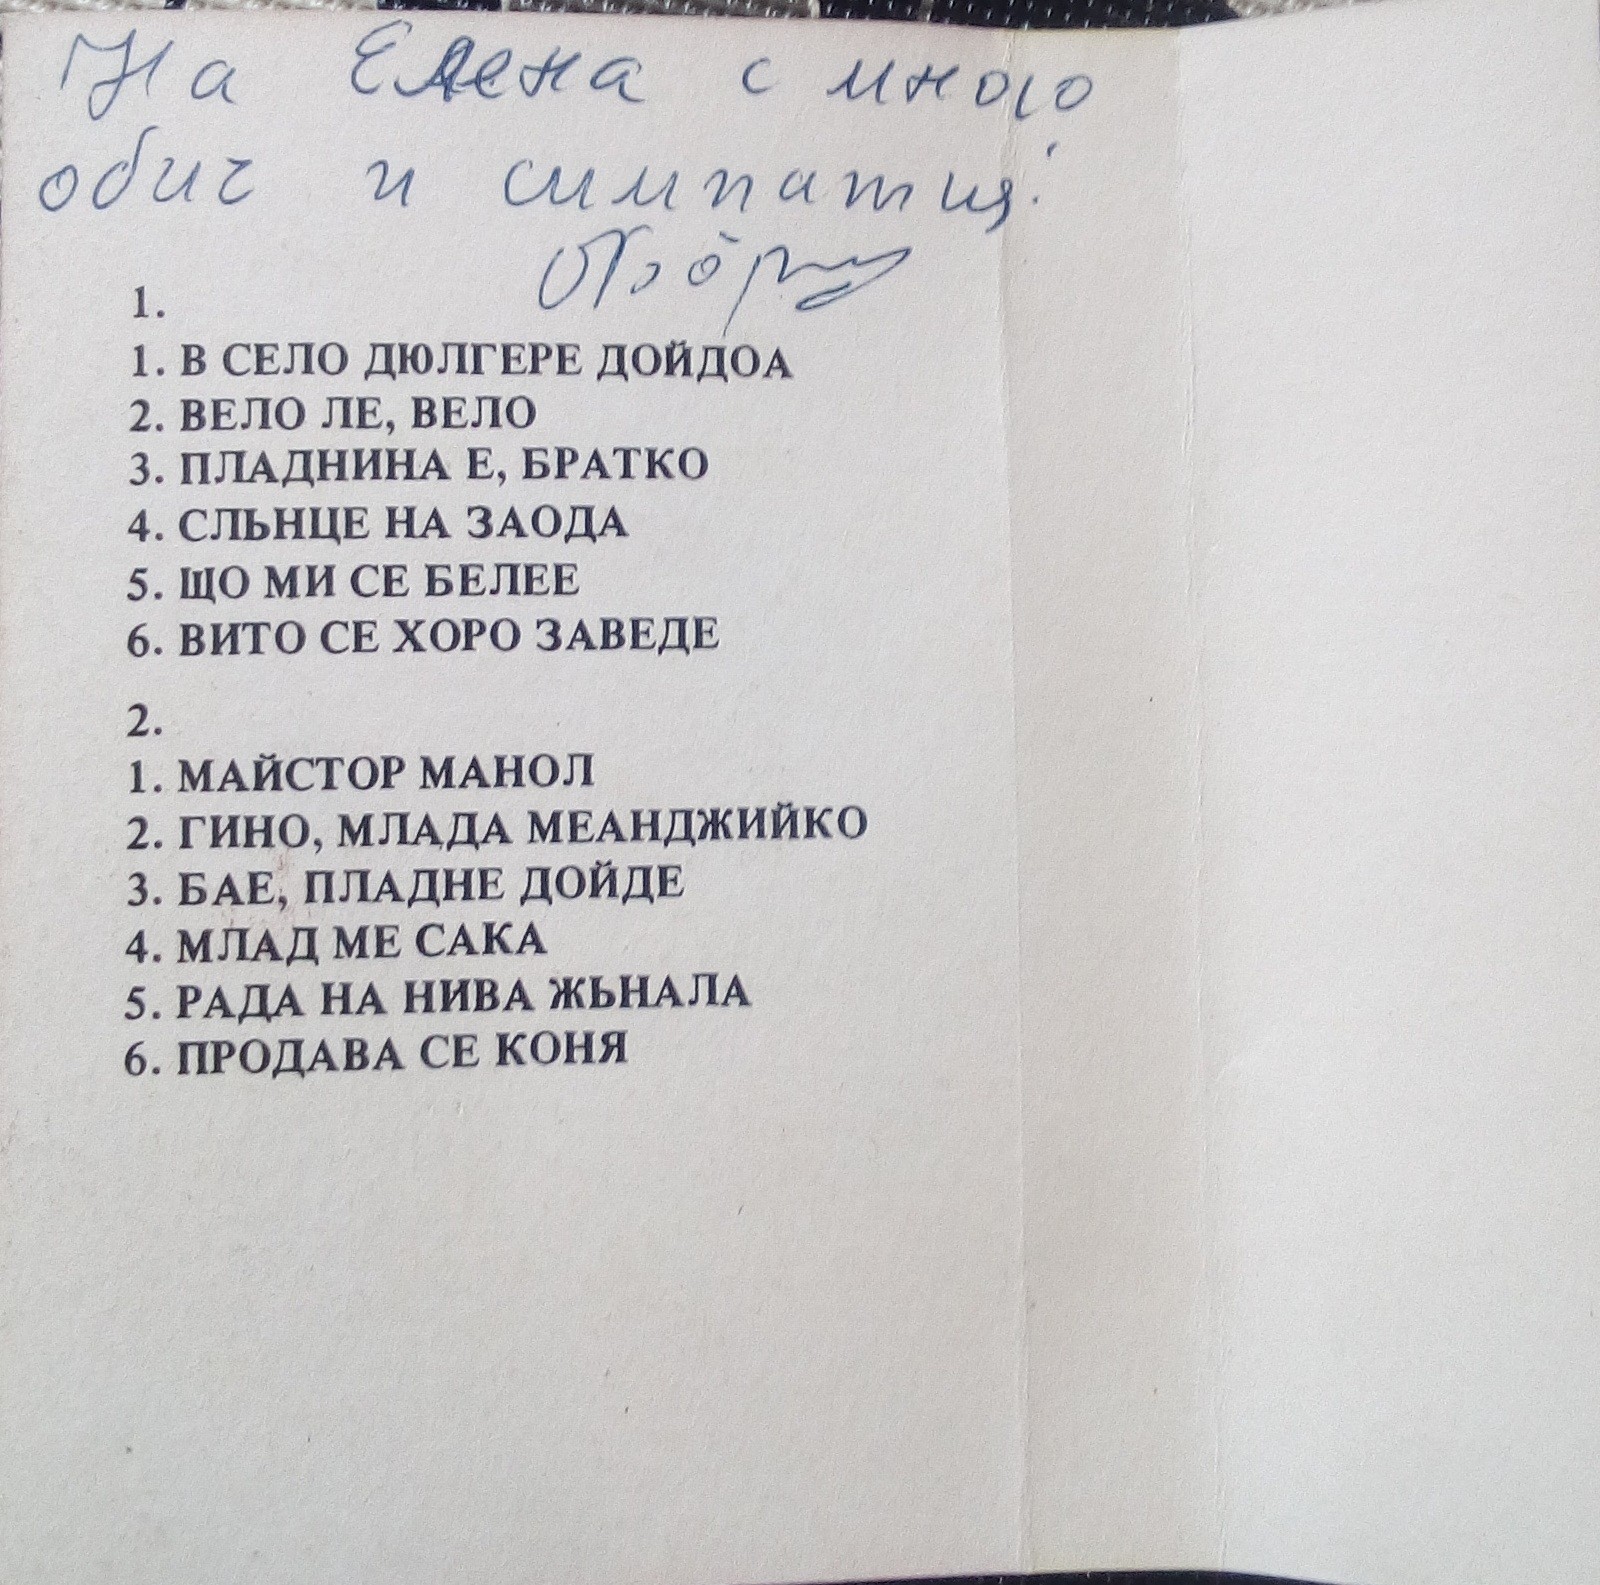 На Елена с много
обич и симпатия!
1.
1. В СЕЛО ДЮЛГЕРЕ ДОЙДОА
2. ВЕЛО ЛЕ, ВЕЛО
3. ПЛАДНИНА Е, БРАТКО
4. СЛЬНЦЕ НА ЗАОДА
5. ЩО МИ СЕ БЕЛЕЕ
6. ВИТО СЕ ХОРО ЗАВЕДЕ
2.
1. МАЙСТОР МАНОЛ
2. ГИНО, МЛАДА МЕАНДЖИЙКО
3. БАЕ, ПЛАДНЕ ДОЙДЕ
4. МЛАД МЕ САКА
5. РАДА НА НИВА ЖЬНАЛА
6. ПРОДАВА СЕ КОНЯ